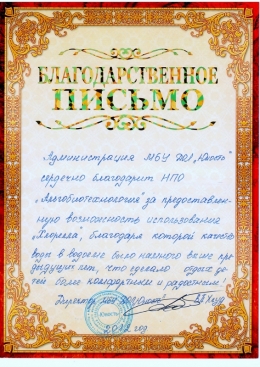 БЛАГОДАРСТВЕННОЕ
ПИСЬМО
Администрация МБУ ДОЛ „Юность"
сердечно благодарит НПО
„Альгобиотехнология" за предоставлен-
ную возможность использования
„Хлорелла", благодаря которой качество
воды в водоеме было намного выше пре-
дыдущих лет, что сделало отдых де-
тей более комфортным и радостным!
Директор МБУ ДОЛ „Юность"
2012 год